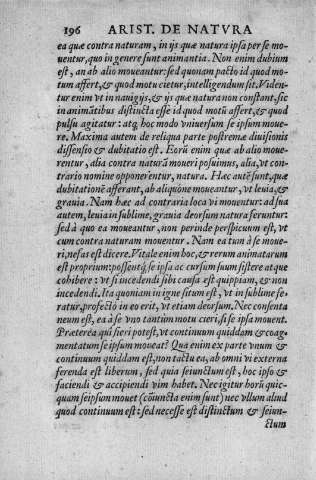 196 ARIST. DE NATVRA
ea quæ contra naturam, in ijs quæ natura ipsa per se mo-
uentur, quo in genere sunt animantia. Non enim dubium
est, an ab alio moueantur: sed quonam pacto id quod mo-
tum affert, & quod motu cietur, intelligendum sit. Viden-
tur enim vt in nauigijs, & ijs quæ natura non constant, sic
in animãtibus distincta esse id quod motũ affert, & quod
pulsu agitatur: atq; hoc modo vniuersum se ipsum moue-
re. Maxima autem de reliqua parte postremæ diuisionis
dissensio & dubitatio est. Eorũ enim quæ ab alio moue-
rentur, alia contra naturã moueri posuimus, alia, vt con-
trario nomine opponerentur, natura. Hæc autẽ sunt, quæ
dubitationẽ afferant, ab aliquóne moueantur, vt leuia, &
grauia. Nam hæc ad contraria loca vi mouentur: ad sua
autem, leuia in sublime, grauia deorsum natura feruntur:
sed à quo ea moueantur, non perinde perspicuum est, vt
cum contra naturam mouentur. Nam ea tum à se moue-
ri, nefas est dicere. Vitale enim hoc, & rerum animatarum
est proprium: possentq́; se ipsa ac cursum suum sistere atque
cohibere: vt si incedendi sibi causa est quippiam, & non
incedendi. Ita quoniam in igne situm est, vt in sublime fe-
ratur, profectò in eo erit, vt etiam deorsum. Nec consenta
neum est, ea à se vno tantùm motu cieri, si se ipsa mouent.
Præterea quî fieri potest, vt continuum quiddam & coag-
mentatum se ipsum moueat? Qua enim ex parte vnum &
continuum quiddam est, non tactu ea, ab omni vi externa
ferenda est liberum, sed quia seiunctum est, hoc ipso &
faciendi & accipiendi vim habet. Nec igitur horũ quic-
quam seipsum mouet (cõiuncta enim sunt) nec vllum aliud
quod continuum est: sed necesse est distinctum & seiun-
ctum